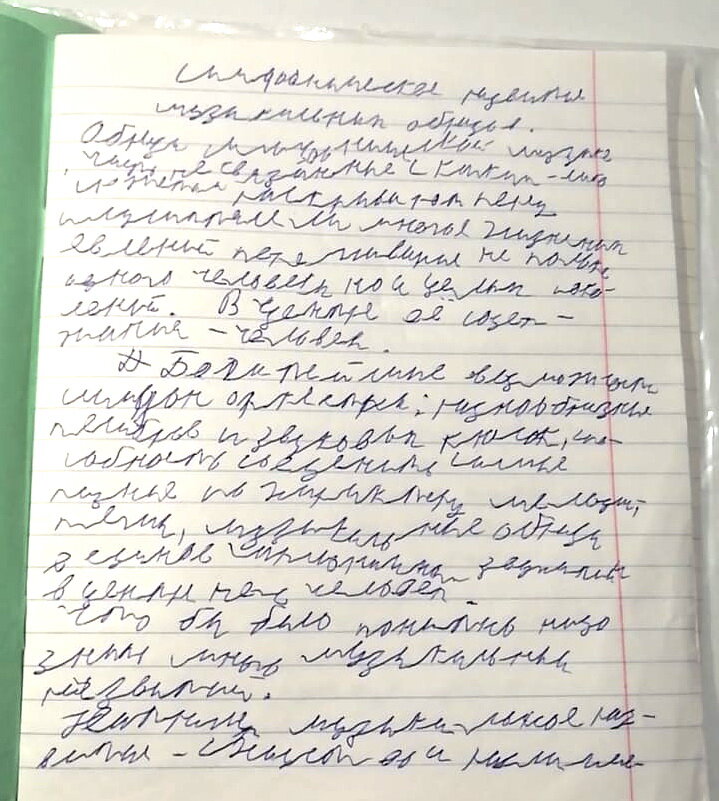 Симфоническое развитие
музыкальных образов.
Образы симфонической музыке
часто не связанные с каким-либо
раскрывают перед
слушателем многое жизненых
явлений переживания не только
одного человека но и целых поко-
лений. В центре её содер-
жания - человек.
Богатейшие возможности
симфон оркестра: разнообразие
тембров и звуковых красок, спо-
собность соединить самые
разные по характеру мелодии,
темы, музыкальные образы
в единое
в центре него человек.
Что бы было понятно надо
знать музыкальный
развития.
музыкальное раз-
витие -